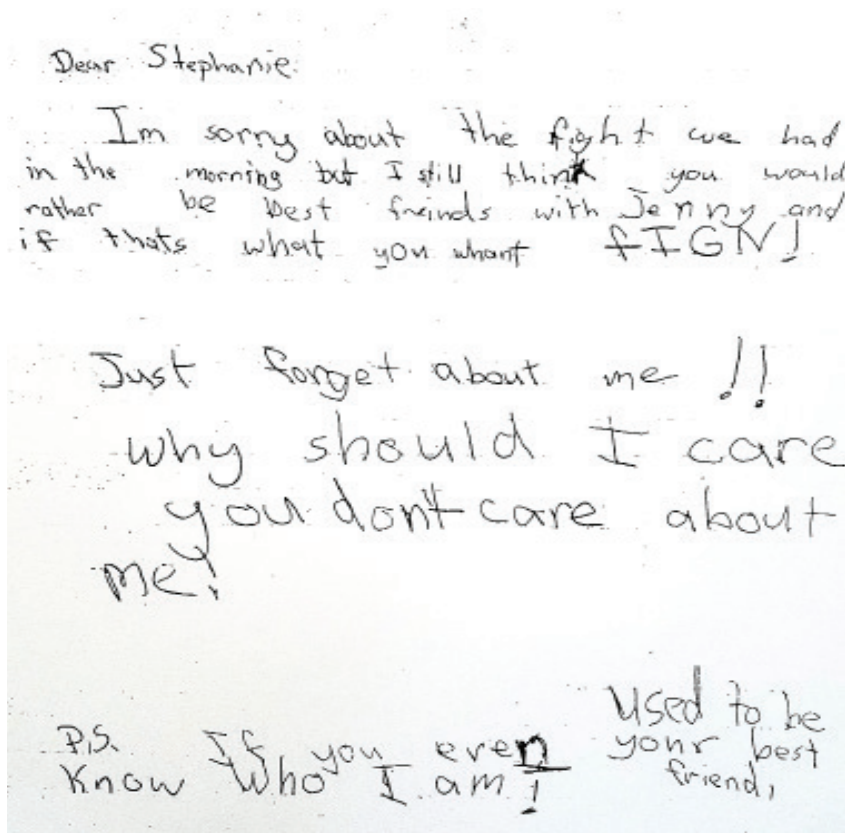 Dear Stephanie.
Im sorry about the fight we had
in the morning but I still think you would
rather be best freinds with Jenny and
if thats what you whant fIGN!
Just forget about me !!
why should I care
you don't care about
me!
P.S. If you even
Know Who I am!
Used to be
your best
friend,